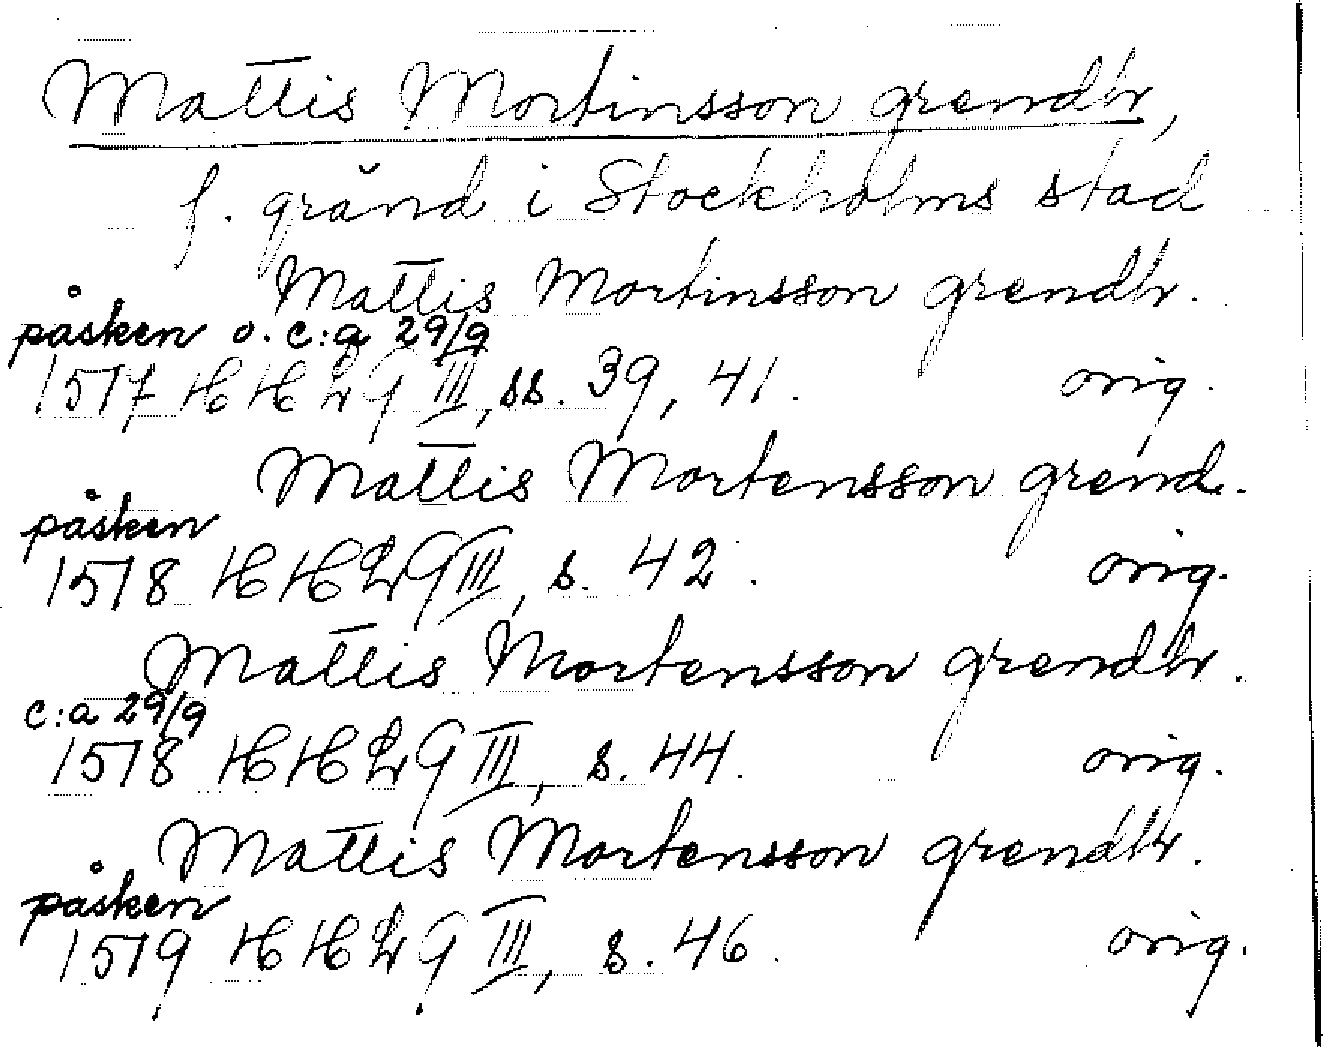 Mattis Mortinsson grendhr,
f. gränd i Stockholms stad
Mattis Mortinsson grendhr.
påsken o. c:a 29/9
1517 HHLG III, ss. 39, 41. orig.
Mattis Mortensson grend.
påsken
1518 HHLG III, s. 42. orig.
Mattis Mortensson grendhr.
c:a 29/9
1518 HHLG III, s. 44. orig.
Mattis Mortensson grendhr.
påsken
1519 HHLG III, s. 46. orig.